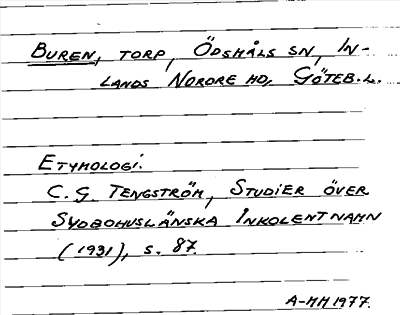 BUREN, TORP, ÖDSMÅLS SN, IN-
LANDS NORDRE HD, GÖTEB.L.
ETYMOLOGI.
C. G. TENGSTRÖM, STUDIER ÖVER
SYDBOHUSLÄNSKA INKOLENTNAMN
(1931), S. 87.
A-MH 1977.